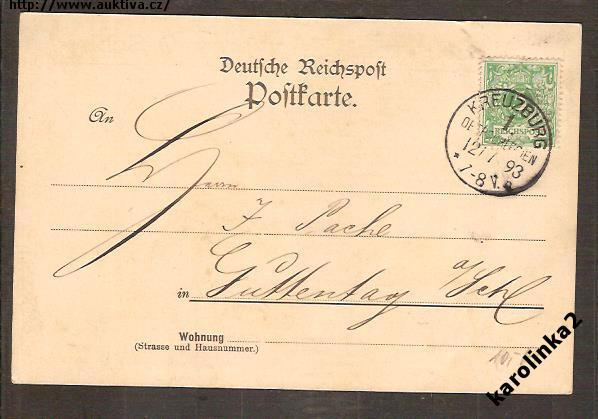 http://www.auktiva.cz/
Deutsche Reichspost
Postkarte.
An
Herrn
J. Pache
in Guttentag O/Schl
Wohnung
(Strasse und Hausnummer.)
KREUZBURG
1
REICHSPOST
12/7 93
* 7-8 V. *
karolinka2